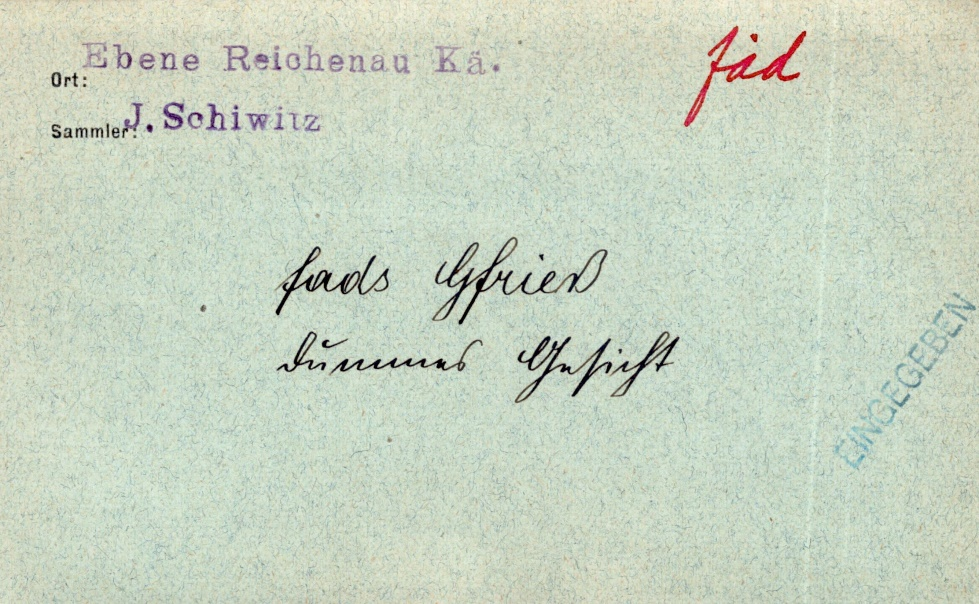 Ebene Reichenau Kä.
Ort:
fåd
Sammler: J. Schiwitz
fads Gfrieß
dummes Gesicht
EINGEGEBEN